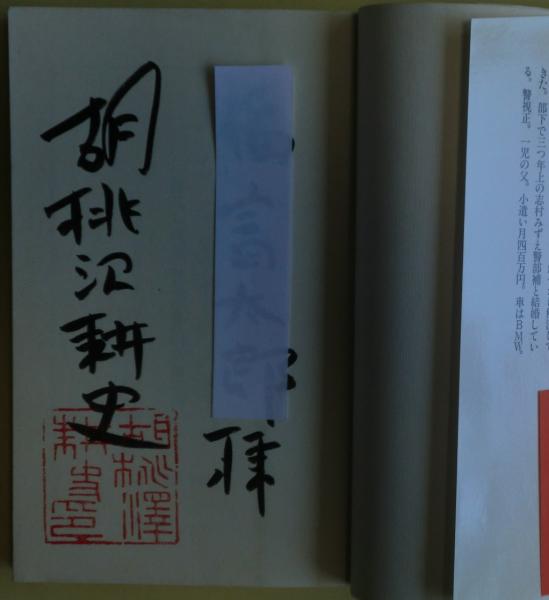 きた。部下で三つ年上の志村みずえ警部補と結婚してい
る。警視正。一児の父。小遣い月四百万円。車はBMW。
様
胡桃沢耕史
胡桃澤
耕史印